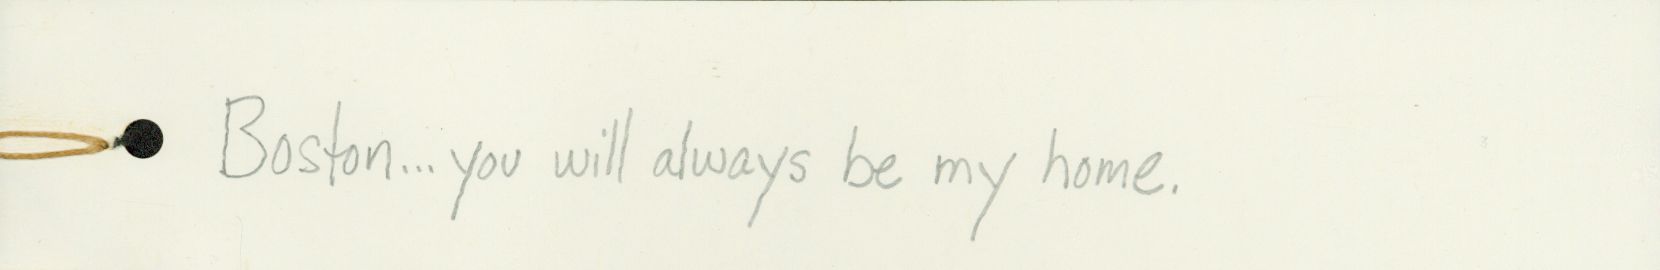 Boston... you will always be my home.